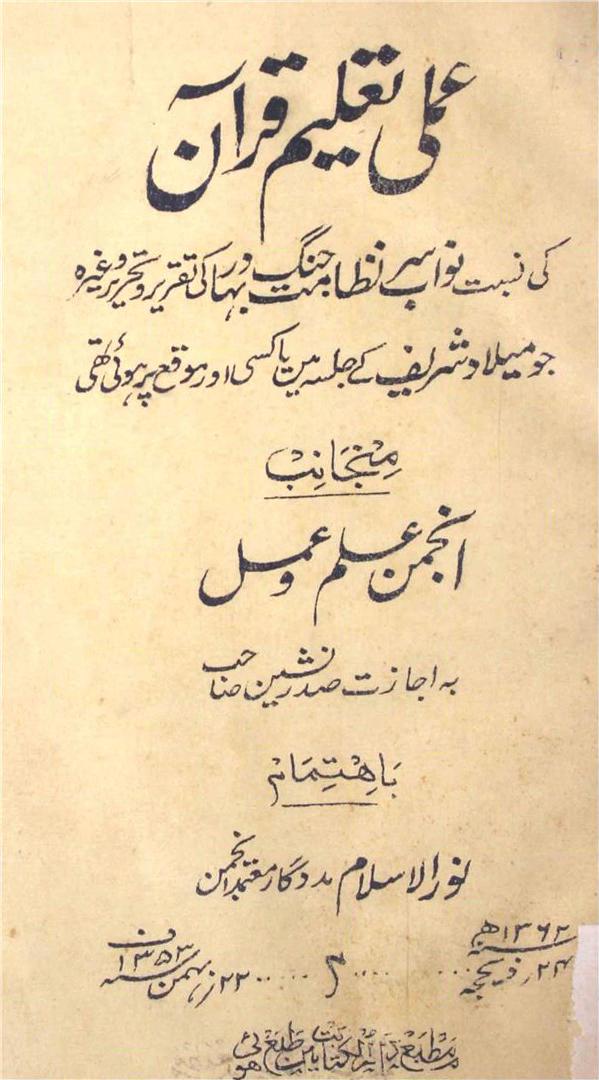 عملی تعلیم قرآن
کی نسبت نواب سر نظامت جنگ بہادر کی تقریر و تحریر وغیرہ
جو میلاد شریف کے جلسہ میں یا کسی اور موقع پر ہوئی تھی
مِنْجَانِبْ
انجمن علم و عمل
بہ اجازت صدر نشین صاحب
بَاهْتِمَامْ
نورالاسلام مددگار معتمد انجمن
۲۴ رذیحجہ سنہ ۱۳۶۲ ھ م ۲۲ ر بہمن سنہ ۱۳۵۳ ف
مطبع دائر الکتابت میں طبع ہوئی